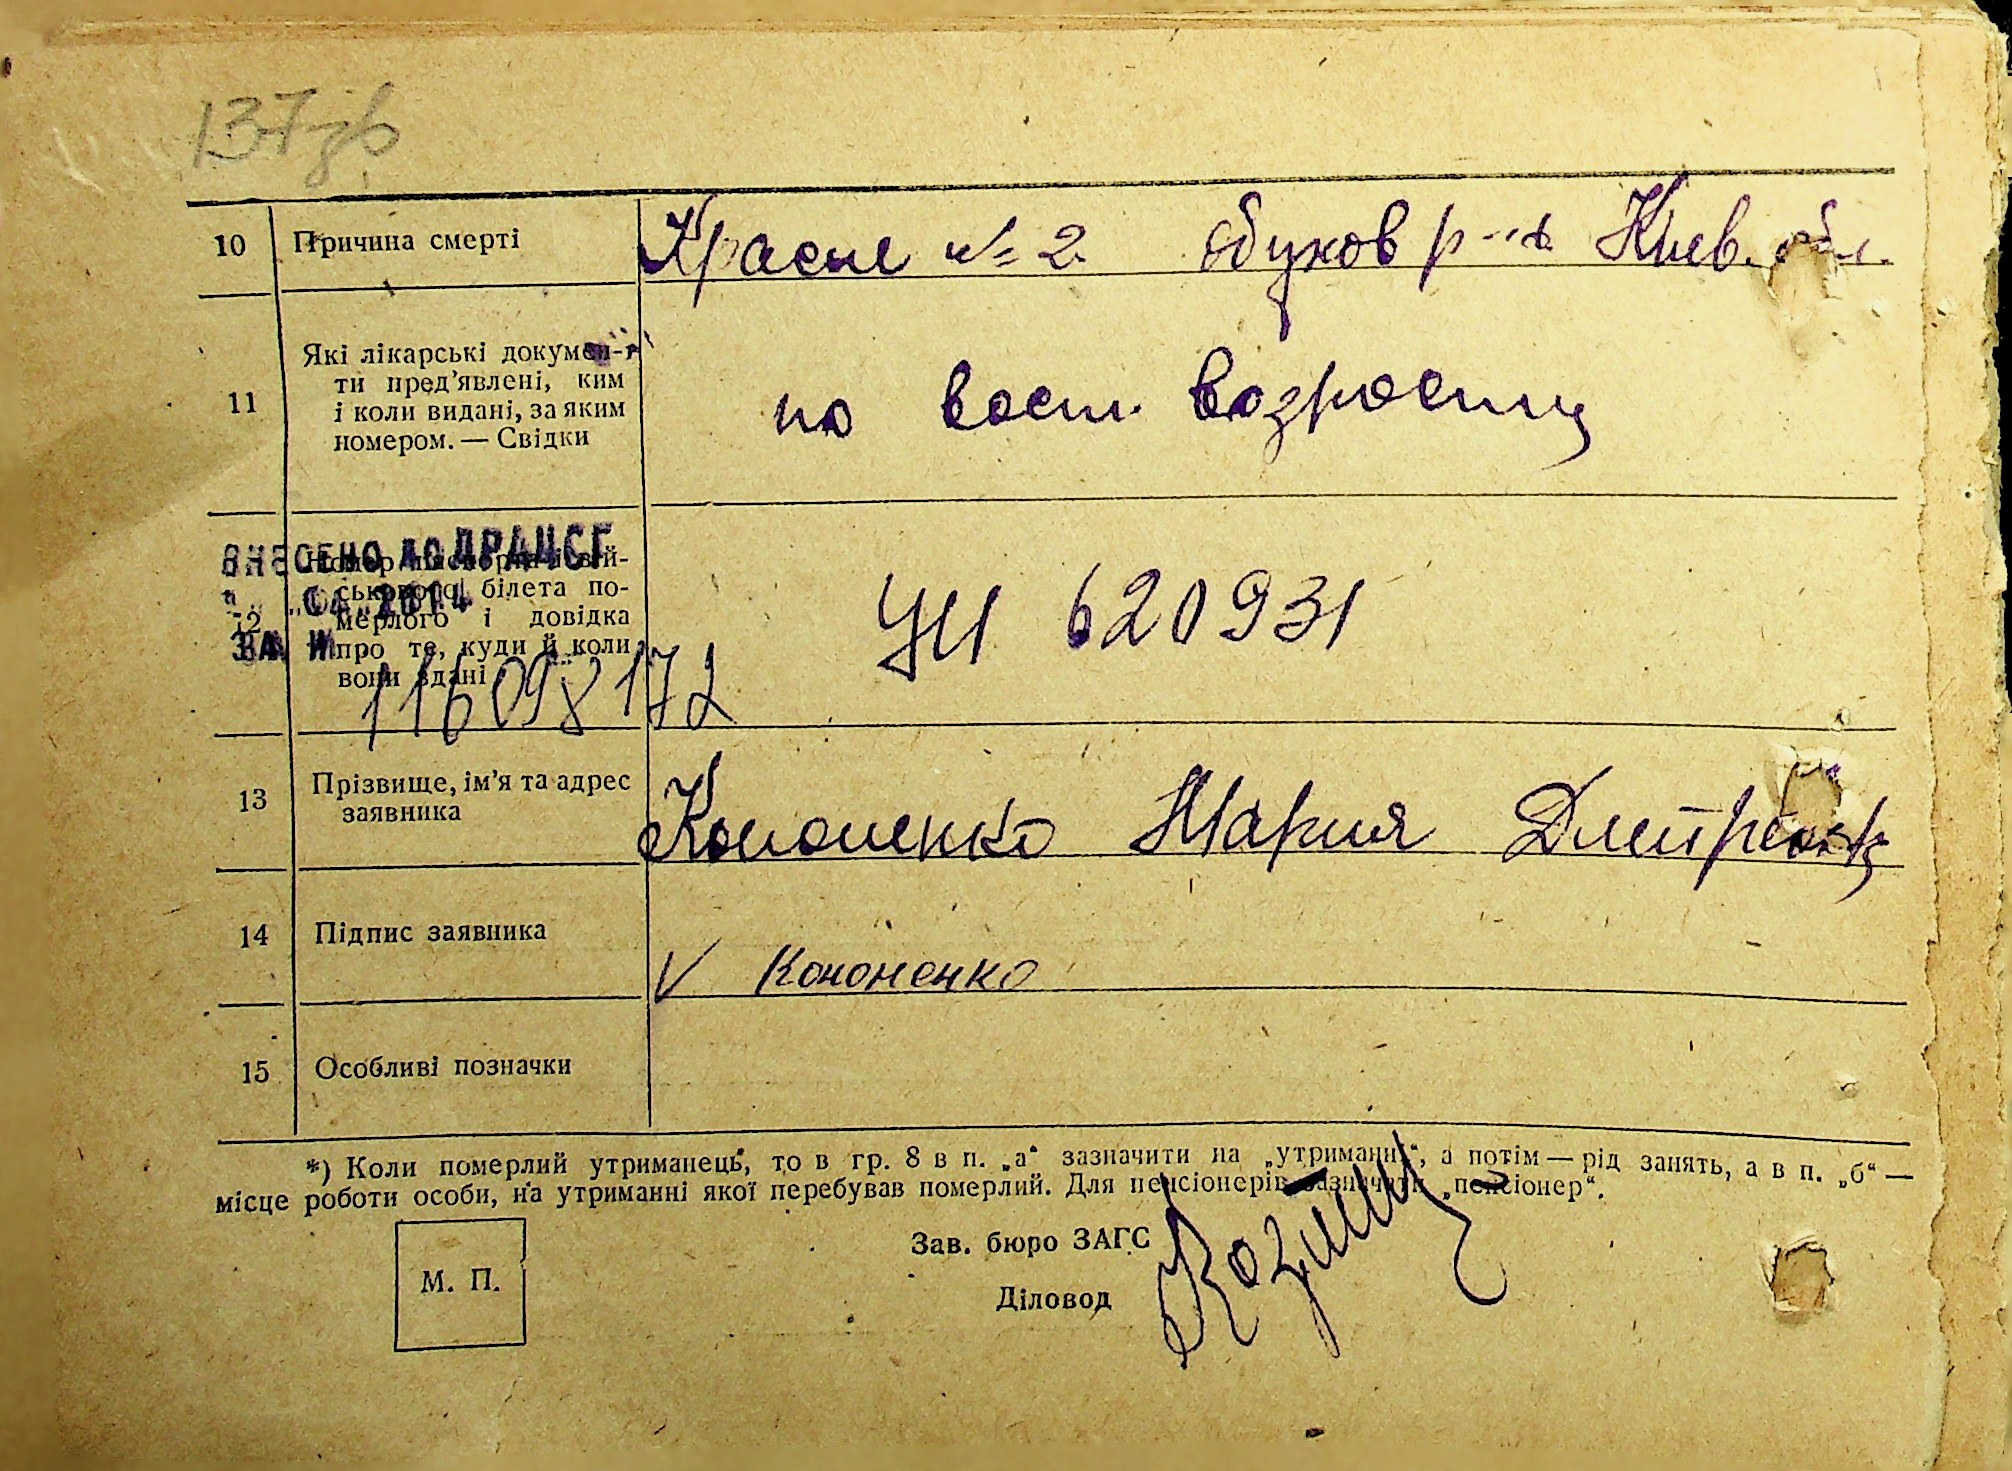 137зв
10 Причина смерті Красне №2 Обухов р-на Киев. обл.
11 Які лікарські докумен-
ти пред'явлені, ким
і коли видані, за яким
номером. — Свідки
по восст. возрасту
ВНЕСЕНО ДО ДРАЦСГ
12 Номер паспорта і вій-
ськової білета по-
мерлого і довідка
про те, куди й коли
вони здані
04 2014
ЗА №
116098172
УН 620931
13 Прізвище, ім'я та адрес
заявника
Кононенко Мария Дмитр
14 Підпис заявника
V Кононенко
15 Особливі позначки
*) Коли померлий утриманець, то в гр. 8 в п. „а“ зазначити на „утриманні“, а потім — рід занять, а в п. „б“ —
місце роботи особи, на утриманні якої перебував померлий. Для пенсіонерів зазначати „пенсіонер“.
М. П.
Зав. бюро ЗАГС
Діловод